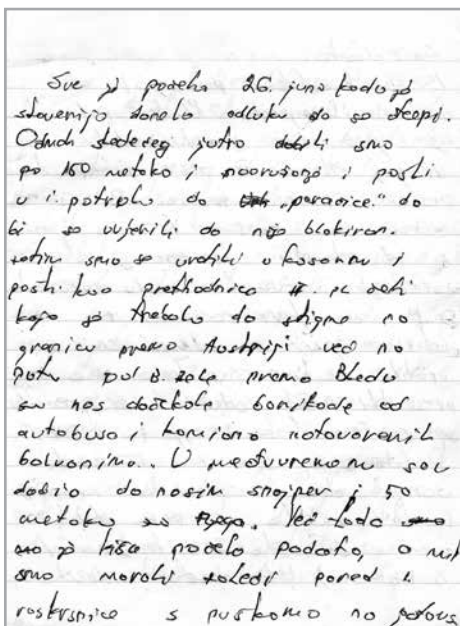 Sve je počelo 26. juna kada je
slovenija donela odluku da se otcepi.
Odmah sledećeg jutra dobili smo
po 150 metaka i naoružanje i pošli
u i. potrplu do „peračice" da
bi se uvjerili da nije blokiran.
zatim smo se vratili u kasarnu i
pošli kao prethodnica
koja je trebala da stigne na
granicu prema Austriji već na
putu prema Bledu
su nas dočekale barikade od
autobusa i kamiona natovarenih
balvanima. U međuvremenu sam
dobio da nosim snajper i 50
metaka za njega. Već tada
je kiša počela padati, a mi
smo morali zaleći pored
raskrsnice s puškama na gotovs